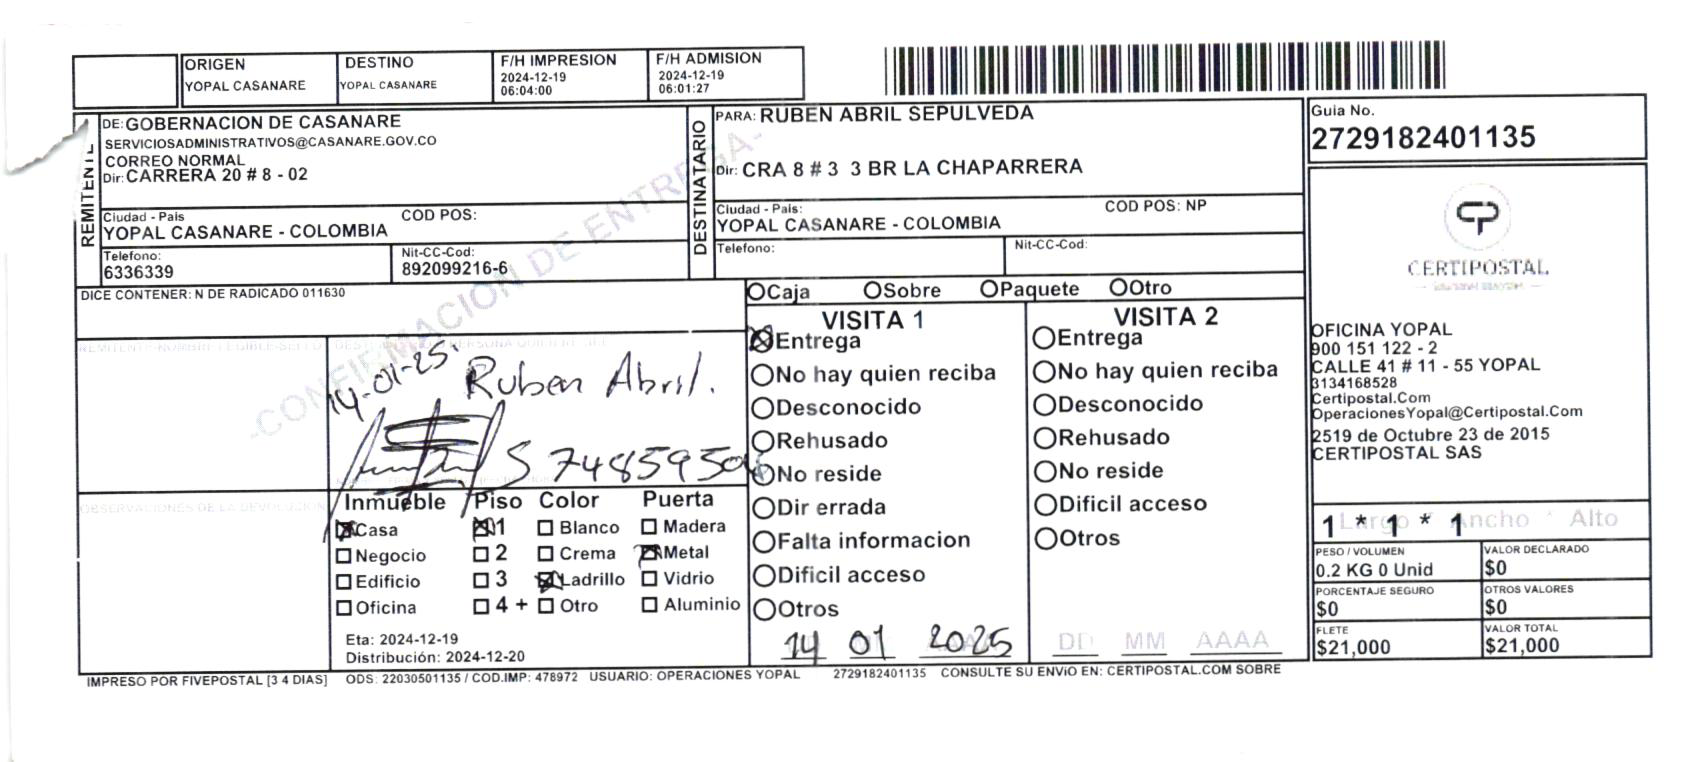 ORIGEN
YOPAL CASANARE
DESTINO
YOPAL CASANARE
F/H IMPRESION
2024-12-19
06:04:00
F/H ADMISION
2024-12-19
06:01:27
REMITENTE
DE: GOBERNACION DE CASANARE
SERVICIOSADMINISTRATIVOS@CASANARE.GOV.CO
CORREO NORMAL
Dir: CARRERA 20 # 8 - 02
Ciudad - Pais
COD POS:
YOPAL CASANARE - COLOMBIA
Telefono:
6336339
Nit-CC-Cod:
892099216-6
DESTINATARIO
PARA: RUBEN ABRIL SEPULVEDA
Dir: CRA 8 # 3 3 BR LA CHAPARRERA
Ciudad - Pais:
COD POS: NP
YOPAL CASANARE - COLOMBIA
Telefono:
Nit-CC-Cod:
Guia No.
2729182401135
CERTIPOSTAL
OFICINA YOPAL
900 151 122 - 2
CALLE 41 # 11 - 55 YOPAL
3134168528
Certipostal.Com
OperacionesYopal@Certipostal.Com
2519 de Octubre 23 de 2015
CERTIPOSTAL SAS
Largo * Ancho * Alto
1 * 1 * 1
PESO / VOLUMEN
0.2 KG 0 Unid
VALOR DECLARADO
$0
PORCENTAJE SEGURO
$0
OTROS VALORES
$0
FLETE
$21,000
VALOR TOTAL
$21,000
DICE CONTENER: N DE RADICADO 011630
-CONFIRMACION DE ENTREGA-
14-01-25
Ruben Abril.
OBSERVACIONES DE LA DEVOLUCION
Inmueble
Casa
Negocio
Edificio
Oficina
Piso
1
2
3
4 +
Color
Blanco
Crema
Ladrillo
Otro
Puerta
Madera
Metal
Vidrio
Aluminio
Eta: 2024-12-19
Distribución: 2024-12-20
Caja Sobre Paquete Otro
VISITA 1
Entrega
No hay quien reciba
Desconocido
Rehusado
No reside
Dir errada
Falta informacion
Dificil acceso
Otros
14 01 2025
VISITA 2
Entrega
No hay quien reciba
Desconocido
Rehusado
No reside
Dificil acceso
Otros
DD MM AAAA
IMPRESO POR FIVEPOSTAL [3 4 DIAS] ODS: 22030501135 / COD.IMP: 478972 USUARIO: OPERACIONES YOPAL 2729182401135 CONSULTE SU ENVIO EN: CERTIPOSTAL.COM SOBRE